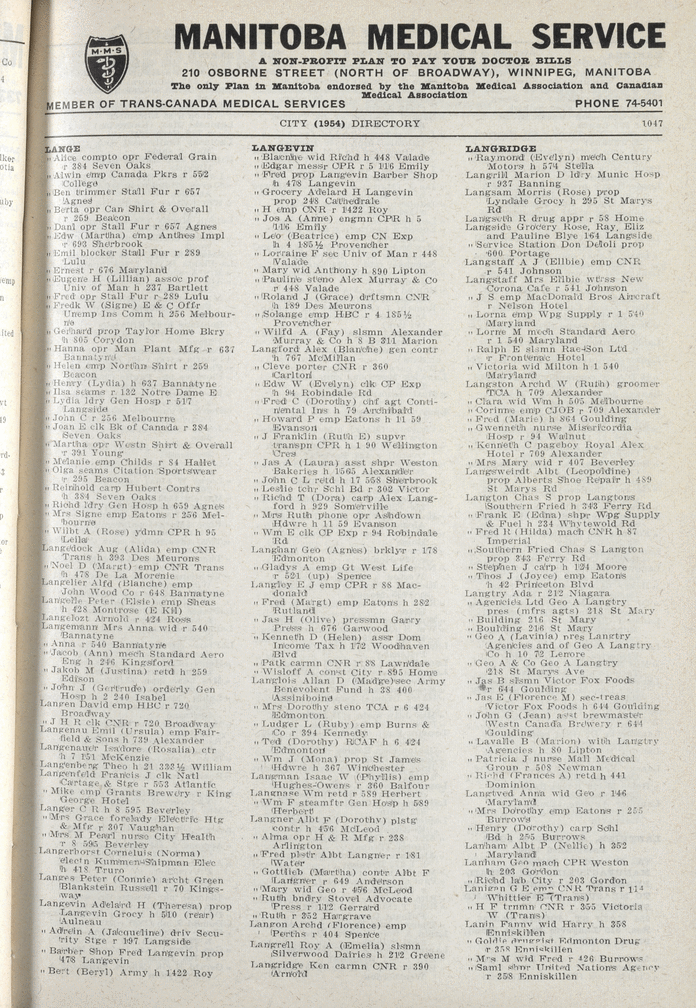 M·M·S
MANITOBA MEDICAL SERVICE
A NON-PROFIT PLAN TO PAY YOUR DOCTOR BILLS
210 OSBORNE STREET (NORTH OF BROADWAY), WINNIPEG, MANITOBA
The only Plan in Manitoba endorsed by the Manitoba Medical Association and Canadian
Medical Association
MEMBER OF TRANS-CANADA MEDICAL SERVICES PHONE 74-5401
CITY (1954) DIRECTORY 1047
LANGE
" Alice compto opr Federal Grain
r 384 Seven Oaks
" Alwin emp Canada Pkrs r 552
College
" Ben trimmer Stall Fur r 657
Agnes
" Berta opr Can Shirt & Overall
r 259 Beacon
" Danl opr Stall Fur r 657 Agnes
" Edw (Martha) emp Anthes Impl
r 693 Sherbrook
" Emil blocker Stall Fur r 289
Lulu
" Ernest r 676 Maryland
" Eugene H (Lillian) assoc prof
Univ of Man h 237 Bartlett
" Fred opr Stall Fur r 289 Lulu
" Fredk W (Signe) E & C Offr
Unemp Ins Comm h 256 Melbour-
ne
" Gerhard prop Taylor Home Bkry
h 805 Corydon
" Hanna opr Man Plant Mfg r 637
Bannatyne
" Helen emp Northn Shirt r 259
Beacon
" Henry (Lydia) h 637 Bannatyne
" Ilsa seams r 132 Notre Dame E
" Lydia ldry Gen Hosp r 517
Langside
" John C r 256 Melbourne
" Joan E clk Bk of Canada r 384
Seven Oaks
" Martha opr Westn Shirt & Overall
r 391 Young
" Melanie emp Childs r 84 Hallet
" Olga seams Citation Sportswear
r 295 Beacon
" Reinhold carp Hubert Contrs
h 384 Seven Oaks
" Richd ldry Gen Hosp h 659 Agnes
" Mrs Signe emp Eatons r 256 Mel-
bourne
" Wilbt A (Rose) ydmn CPR h 95
Leila
Langedock Aug (Alida) emp CNR
Trans h 393 Des Meurons
" Noel D (Margt) emp CNR Trans
h 478 De La Morenie
Langelier Alfd (Blanche) emp
John Wood Co r 648 Bannatyne
Langelle Peter (Elsie) emp Sheas
h 428 Montrose (E Kil)
Langelotz Arnold r 424 Ross
Langemann Mrs Anna wid r 540
Bannatyne
" Anna r 540 Bannatyne
" Jacob (Ann) mech Standard Aero
Eng h 246 Kingsford
" Jakob M (Justina) retd h 259
Edison
" John J (Gertrude) orderly Gen
Hosp h 2 240 Isabel
Langen David emp HBC r 720
Broadway
" J H R clk CNR r 720 Broadway
Langenau Emil (Ursula) emp Fair-
field & Sons h 739 Alexander
Langenauer Isadore (Rosalia) ctr
h 7 151 McKenzie
Langenberg Theo h 21 332½ William
Langenfeld Francis J clk Natl
Cartage & Stge r 553 Atlantic
" Mike emp Grants Brewery r King
George Hotel
Langer C R h 8 595 Beverley
" Mrs Grace forelady Electric Htg
& Mfg r 307 Vaughan
" Mrs M Pearl nurse City Health
r 8 595 Beverley
Langerhorst Corneluis (Norma)
electn Kummen-Shipman Elec
h 418 Truro
Langes Peter (Connie) archt Green
Blankstein Russell r 70 Kings-
way
Langevin Adelard H (Theresa) prop
Langevin Grocy h 510 (rear)
Aulneau
" Adrien A (Jacqueline) driv Secu-
rity Stge r 197 Langside
" Barber Shop Fred Langevin prop
478 Langevin
" Bert (Beryl) Army h 1422 Roy
LANGEVIN
" Blanche wid Richd h 448 Valade
" Edgar messr CPR r 5 116 Emily
" Fred prop Langevin Barber Shop
h 478 Langevin
" Grocery Adelard H Langevin
prop 248 Cathedrale
" H emp CNR r 1422 Roy
" Jos A (Anne) engmn CPR h 5
116 Emily
" Leo (Beatrice) emp CN Exp
h 4 185½ Provencher
" Lorraine F sec Univ of Man r 448
Valade
" Mary wid Anthony h 890 Lipton
" Pauline steno Alex Murray & Co
r 448 Valade
" Roland J (Grace) drftsmn CNR
h 189 Des Meurons
" Solange emp HBC r 4 185½
Provencher
" Wilfd A (Fay) slsmn Alexander
Murray & Co h 8 B 311 Marion
Langford Alex (Blanche) gen contr
h 767 McMillan
" Cleve porter CNR r 360
Carlton
" Edw W (Evelyn) clk CP Exp
h 94 Robindale Rd
" Fred C (Dorothy) chf agt Conti-
nental Ins h 79 Archibald
" Howard P emp Eatons h 11 59
Evanson
" J Franklin (Ruth E) supvr
transpn CPR h 1 90 Wellington
Cres
" Jas A (Laura) asst shpr Weston
Bakeries h 1565 Alexander
" John C L retd h 17 558 Sherbrook
" Leslie chr Schl Bd r 302 Victor
" Richd T (Dora) carp Alex Lang-
ford h 929 Somerville
" Mrs Ruth phone opr Ashdown
Hdwre h 11 59 Evanson
" Wm E clk CP Exp r 94 Robindale
Rd
Langhan Geo (Agnes) brklyr r 178
Edmonton
" Gladys A emp Gt West Life
r 521 (up) Spence
Langley E J emp CPR r 88 Mac-
donald
" Fred (Margt) emp Eatons h 282
Rutland
" Jas H (Olive) pressmn Garry
Press h 676 Garwood
" Kenneth D (Helen) assr Dom
Income Tax h 172 Woodhaven
Blvd
" Patk carmn CNR r 88 Lawndale
" Wisloff A const City r 895 Home
Langlois Allan D (Madge) sec Army
Benevolent Fund h 38 400
Assiniboine
" Mrs Dorothy steno TCA r 6 424
Edmonton
" Ludger L (Ruby) emp Burns &
Co r 394 Kennedy
" Ted (Dorothy) RCAF h 6 424
Edmonton
" Wm J (Mona) prop St James
Hdwre h 367 Winchester
Langman Isaac W (Phyllis) emp
Hughes-Owens r 360 Balfour
Langmase Wm retd r 589 Herbert
" Wm F steamftr Gen Hosp h 589
Herbert
Langner Albt F (Dorothy) plstg
contr h 456 McLeod
" Alma opr H & R Mfg r 238
Arlington
" Fred plstr Albt Langner r 181
Water
" Gottlieb (Martha) contr Albt F
Langner r 649 Anderson
" Mary wid Geo r 456 McLeod
" Ruth bndry Stovel Advocate
Press r 112 Gerrard
" Ruth r 352 Hargrave
Langon Archd (Florence) emp
Perths r 404 Spence
Langrell Roy A (Emelia) slsmn
Silverwood Dairies h 212 Greene
Langridge Ken carmn CNR r 390
Arnold
LANGRIDGE
" Raymond (Evelyn) mech Century
Motors h 574 Stella
Langrill Marion D ldry Munic Hosp
r 937 Banning
Langsam Morris (Rose) prop
Lyndale Grocy h 295 St Marys
Rd
Langseth R drug appr r 58 Home
Langside Grocery Rose, Ray, Eliz
and Pauline Blye 164 Langside
" Service Station Don Deloli prop
600 Portage
Langstaff A J (Ellbie) emp CNR
r 541 Johnson
Langstaff Mrs Ellbie wtrss New
Corona Cafe r 541 Johnson
" J S emp MacDonald Bros Aircraft
r Nelson Hotel
" Lorna emp Wpg Supply r 1 540
Maryland
" Lorne M mech Standard Aero
r 1 540 Maryland
" Ralph E slsmn Rae-Son Ltd
r Frontenac Hotel
" Victoria wid Milton h 1 540
Maryland
Langston Archd W (Ruth) groomer
TCA h 709 Alexander
" Clara wid Wm h 505 Melbourne
" Corinne emp CJOB r 709 Alexander
" Fred (Marie) h 864 Goulding
" Gwenneth nurse Misericordia
Hosp r 94 Walnut
" Kenneth C pageboy Royal Alex
Hotel r 709 Alexander
" Mrs Mary wid r 407 Beverley
Langsweirdt Albt (Leopoldine)
prop Alberts Shoe Repair h 489
St Marys Rd
Langton Chas S prop Langtons
Southern Fried h 343 Ferry Rd
" Frank E (Edna) shpr Wpg Supply
& Fuel h 234 Whytewold Rd
" Fred R (Hilda) mach CNR h 87
Imperial
" Southern Fried Chas S Langton
prop 343 Ferry Rd
" Stephen J carp h 124 Moore
" Thos J (Joyce) emp Eatons
h 42 Princeton Blvd
Langtry Ada r 212 Niagara
" Agencies Ltd Geo A Langtry
pres (mfrs agts) 218 St Mary
" Building 216 St Mary
" Boulding 216 St Mary
" Geo A (Lavinia) pres Langtry
Agencies and of Geo A Langtry
Co h 10 72 Lenore
" Geo A & Co Geo A Langtry
218 St Marys Ave
" Jas B slsmn Victor Fox Foods
r 644 Goulding
" Jas E (Florence M) sec-treas
Victor Fox Foods h 644 Goulding
" John G (Jean) asst brewmaster
Westn Canada Brewery r 644
Goulding
" Lavalle B (Marion) with Langtry
Agencies h 80 Lipton
" Patricia J nurse Mall Medical
Group r 508 Newman
" Richd (Frances A) retd h 441
Dominion
Langtved Anna wid Geo r 146
Maryland
" Mrs Dorothy emp Eatons r 255
Burrows
" Henry (Dorothy) carp Schl
Bd h 255 Burrows
Lanham Albt P (Nellie) h 352
Maryland
Lanham Geo mach CPR Weston
h 203 Gordon
" Richd lab City r 203 Gordon
Lanigan G E emp CNR Trans r 114
Whittier E (Trans)
" H F trnmn CNR r 355 Victoria
W (Trans)
Lanin Fanny wid Harry h 358
Enniskillen
" Goldie druggist Edmonton Drug
r 358 Enniskillen
" Mrs M wid Fred r 426 Burrows
" Saml shpr United Nations Agency
r 358 Enniskillen